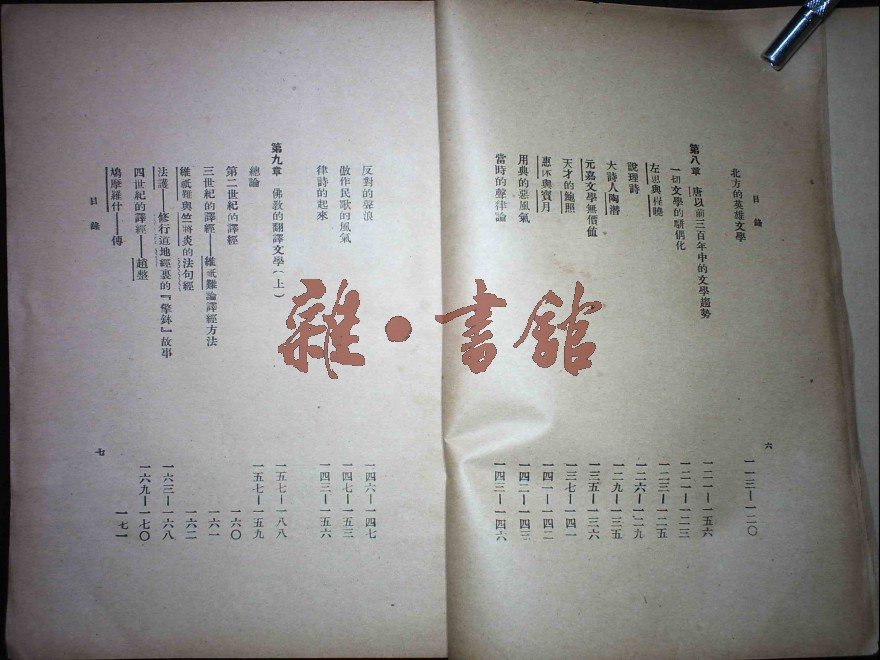 目錄
六
北方的英雄文學 一一三—一二〇
第八章 唐以前三百年中的文學趨勢 一二一—一五六
一切文學的駢偶化 一二一—一二三
左思與程曉 一二三—一二五
說理詩 一二六—一二九
大詩人陶潛 一二九—一三五
元嘉文學無價值 一三五—一三六
天才的鮑照 一三七—一四一
惠休與寶月 一四一—一四二
用典的惡風氣 一四二—一四三
當時的聲律論 一四三—一四六
反對的聲浪 一四六—一四七
倣作民歌的風氣 一四七—一五三
律詩的起來 一四三—一五六
第九章 佛教的翻譯文學(上) 一五七—一八八
總論 一五七—一五九
第二世紀的譯經 一六〇
三世紀的譯經——維祇難論譯經方法 一六一
維祇難與竺將炎的法句經 一六二
法護——修行道地經裏的『擎鉢』故事 一六三—一六八
四世紀的譯經——趙整 一六九—一七〇
鳩摩羅什——傳 一七一
目錄
七
雜·書館